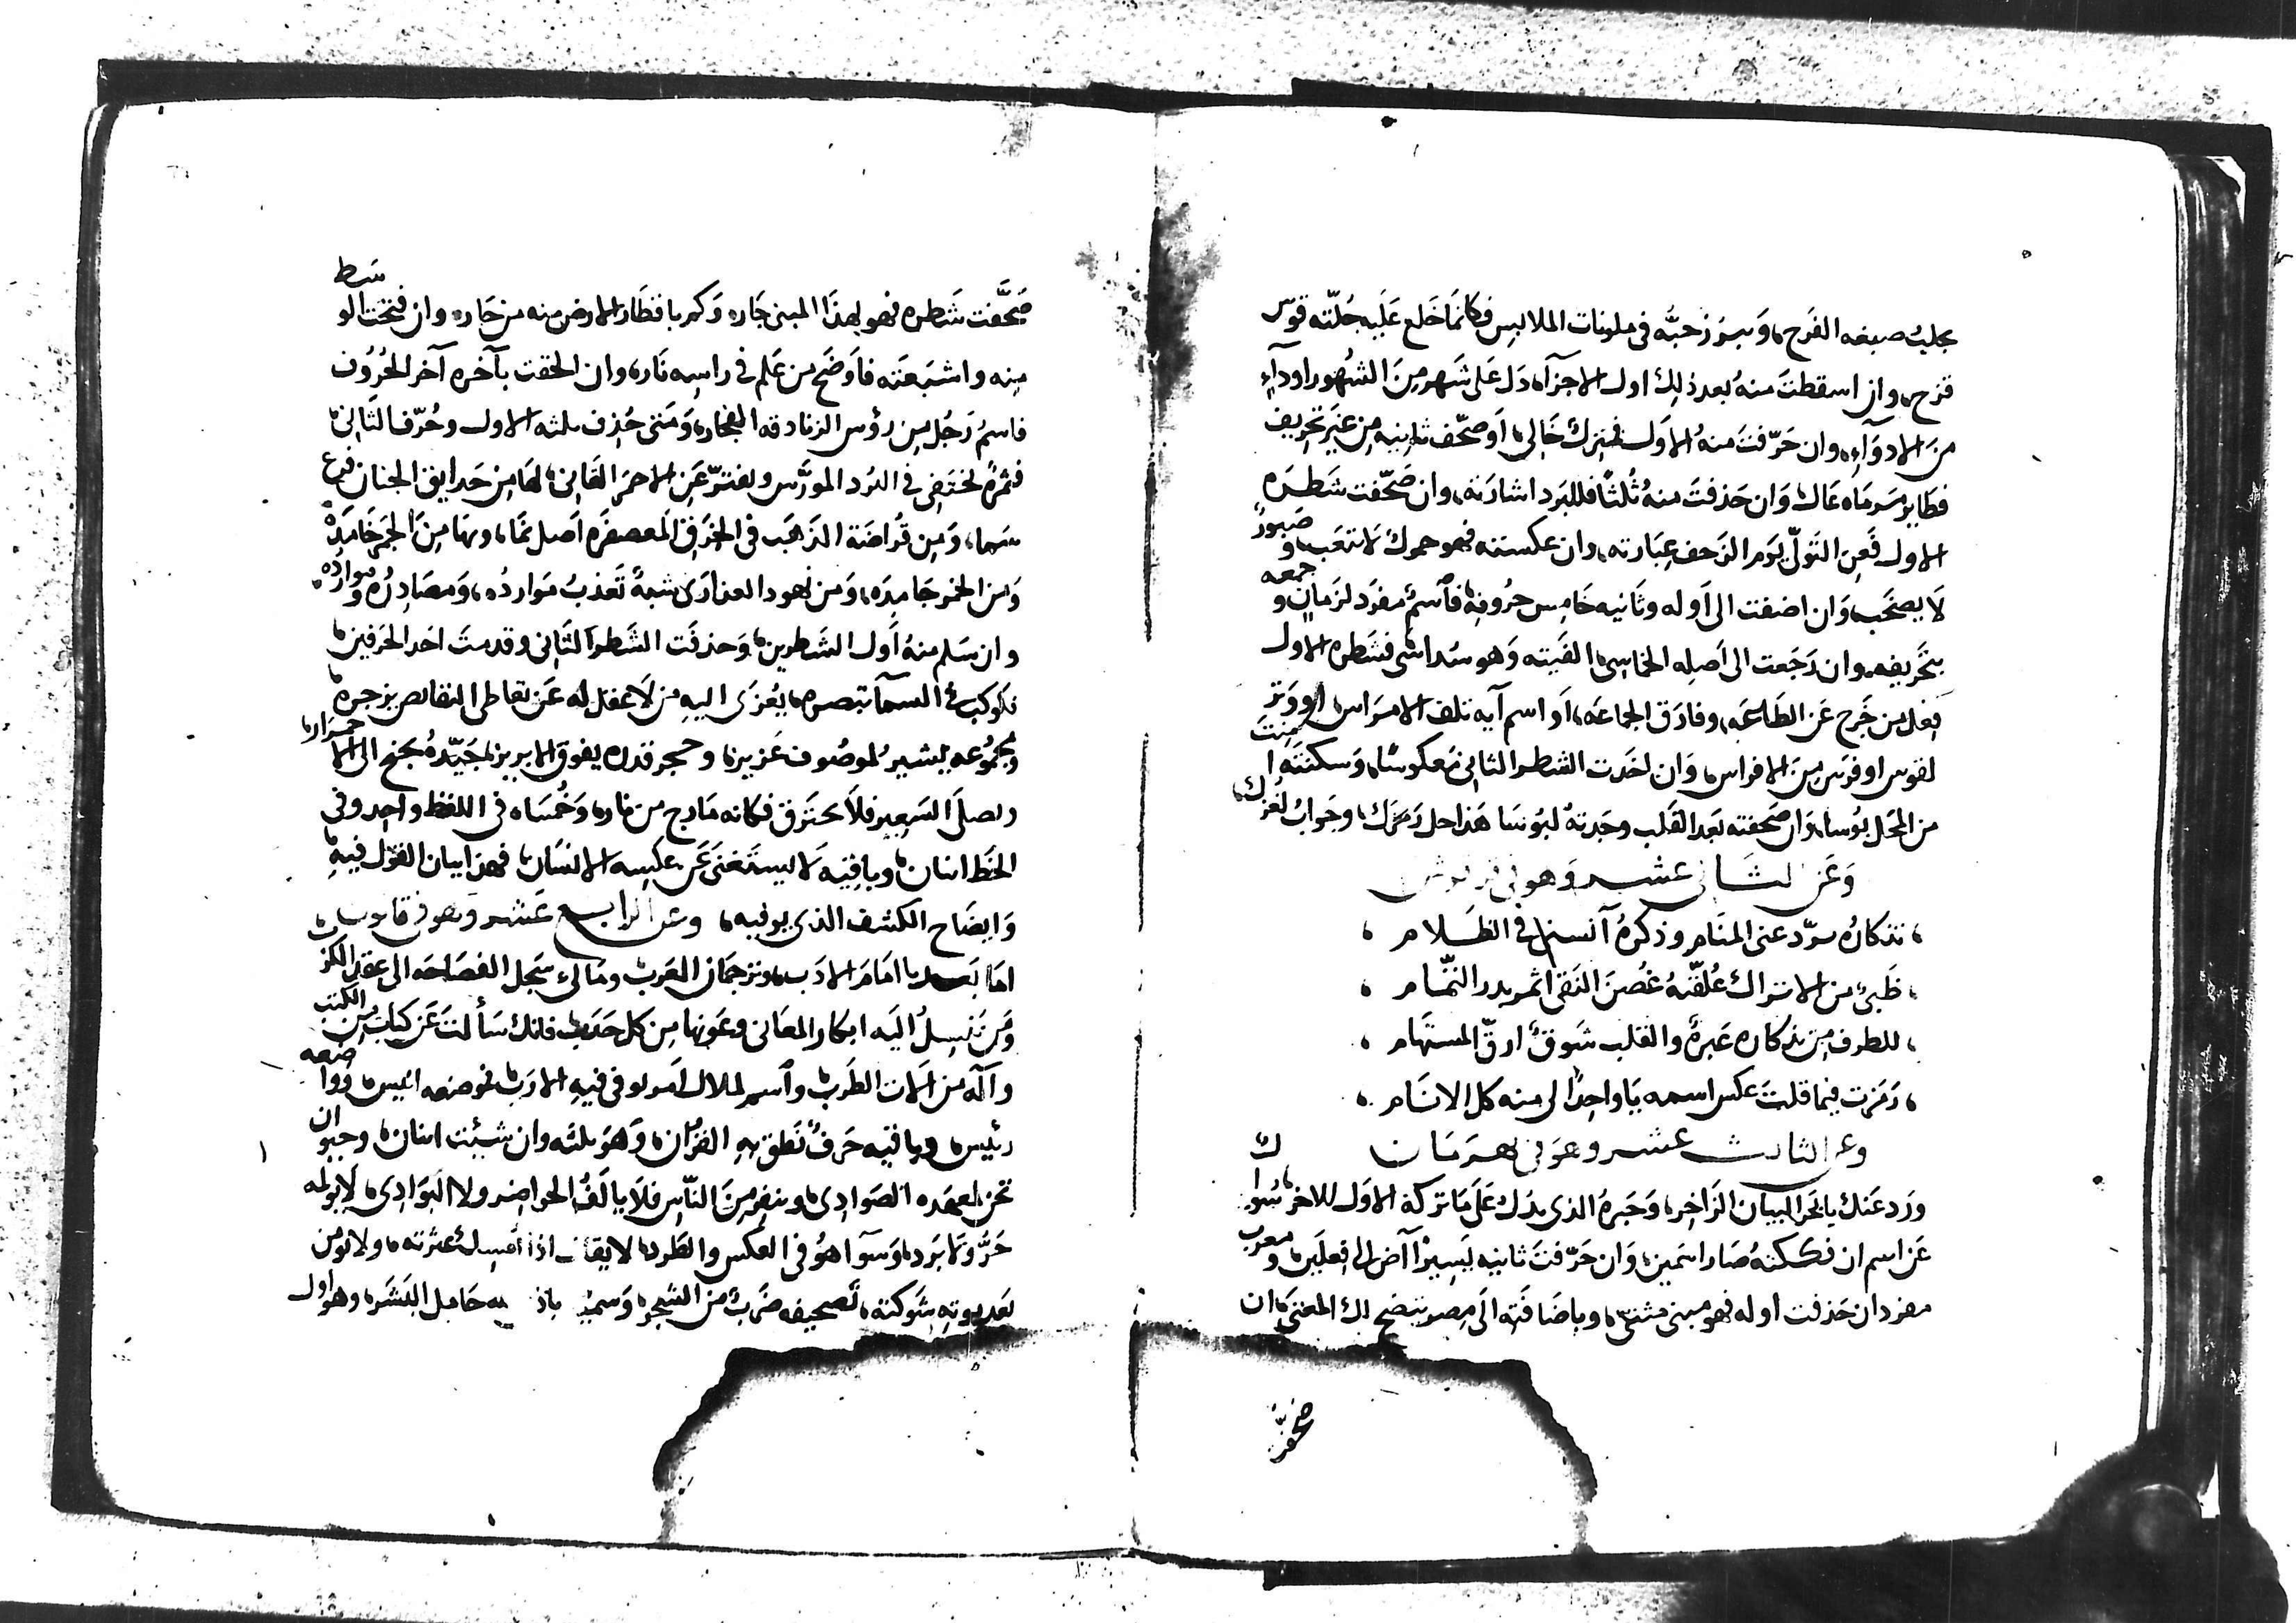 يجلب صبغه الفَرح، وَيبرز حبُّه في ملونات الملابس فكانما خَلع عَليه حُلّته قوس
قزح، وان اسقطتَ منهُ بعد ذلك اول الاجزآء دَل عَلى شَهر مِنَ الشُهور او دآءٍ
منَ الادوَآء، وان حَرّفتَ منهُ الاوَل خَالي، اَو صحّف ثانيه مِن غَير تحريف
فطَاير وَان حَذفتَ منهُ ثُلثًا فللبَرد اشارَته، وان صَحّفت شَطرَه
الاول فَعن التَولّي يَوم الزَحف عِبَارته، وان عكسته فهو حموك لا تتعب، وصَبورٌ
لَا يصخَب، وَان اضفت الى اَوله وثَانيه خَامِس حرُوفه، فَاسمٌ مفرَد لزمانٍ وجمعه
بتَحريفه، وان رَجَعت الى اَصلِه الخماسي، الفَيته وَهو سُداسي فشَطره الاول
فِعل من خَرج عَن الطَاعَه، وفارَق الجماعَه، اَو اسم آيه تلف الامرَاس، او وَتر
لقوس او فرَس مِنَ الافراس، وَان اخَذت الشطر الثاني مَعكوسًا، وَسكنتَه امنتَ
من المحَل بُوسا، وَان صَحفته بَعد القَلب وجَدتهُ لبُوسَا هَذا حل رَمزك، وجَوابُ لُغزك،
وَعَن الثَاني عشَر وَهو في
تذكارُه شرّد عني المنَام وذكرُهُ آنسني في الظَلام
ظَبيٌ من الاتراك عُلقتُهُ غُصنَ النَقى اثمر بدر التمَام
للطرف مِن تذكاره عَبرةٌ والقلب شَوقٌ ارقّ المستهَام
رَمَزت فيما قلتَ عكس اسمه يَا واحِدًا لي منه كل الانَام
وعن الثالث عشر وهو في بهرمَان
ورَد عَنك يا بَحر البيَان الزَاخِر، وَحَبرهُ الذي يدَل عَلى مَا تركهُ الاوَل للاخر، سُوالك
عَن اسم ان فككتهُ صَار اسمَين، وَان حَرّفتَ ثانيه يَسِيرًا آض الى فِعلَين، ومعربٌ
مفرَد ان حَذفت اوله فهو مبني مثنّى، وباضَافَتِه الَى مِصر يتضح لك المعنَى، ان
صَحّفتَ
صَحَّفت شَطره فهو لهذَا المبنى جَاره وَكم باقطَار الارض منه من حَاره وان فتحت الوسط
مِنه واشبَعتَه فاَوضَح من عَلم في راسِه نَار، وان الحقت بآخره آخر الحُروُف
فاسمُ رَجُل مِن رؤس الزنادقه الفجار، وَمَتى حُذِف ثلثه الاول وحُرّف الثَاني،
فثمرهٌ تختفي في البُرد المورَّس وتفترّ عَن الاحمَر القَاني، لهَا مِنَ حَدايق الجنان فرع
سَما، وَمِن قُراضَة الذَهَب في الخِرَق المعصفَره اَصل نمَا، وبهَا مِنَ الجَمر خَامِدَهٌ
وَمن الخمر جَامِدَه، وَمن نهود العذارَى شبهٌ تَعذبُ مَوارِدُه، وَمصَادِرُه ومَوارِدُه،
وان سَلم منهُ اَول الشَطرين، وَحذفت الشَطر الثَاني وقدمتَ احَد الحَرفين،
فكوكبٌ في السمآ تبصره، يُعزَى اليهِ من لَا عقل له عَن تعاطى النقائص يزجره،
ومجُموعه يشيرُ لموصُوف عَزيز، وحجر قدره يفوق الابريز، جَيّدهُ يجنح الى الاحمِرَار،
ويصلَى السَعير فلَا يحتَرق فكانه مَارج من نار، وَخُمسَاه في اللفظ واحِد وفي
الخَط اثنان، وباقيه لَا يستَغنى عَن عكسِه الانسَان، فهذا بيان القوَل فيهِ،
وَايضَاح الكشف الذي يوفيه، وعَن الرابع عَشر وَهو في قانون
امَا بَعد يا امَامَ الادَب، وترجمَان العَرب، وَمَالئ سَجل الفصَاحَه الى عقد الكرَب
وَمَن تنسِلُ اليَه ابكار المعَاني وعَونها مِن كل حَدَب، فانك سَألتَ عَن كتاب مِن الكتب
وآله من آلات الطَرب،
رئيس، وباقيه حَرفٌ نَطق بهِ القرآن، وَهوَ ثلثه وان شئت اثنان، وحيوان
تخزَ لعهده الصَوادِي، وينفر مِنَ النَاس فلَا يالَفُ الحواضر ولا البَوَادِي، لَا يؤلمه
حَرٌّ وَلا بَرد، وَسوَآ هُو في العكس والطَرد، لا يقال اذا عثرته، ولا يؤمن
بَعد موته شَوكته، تصحيفه ضَربٌ من الشجر، حَامل البَشَر، وهو اول